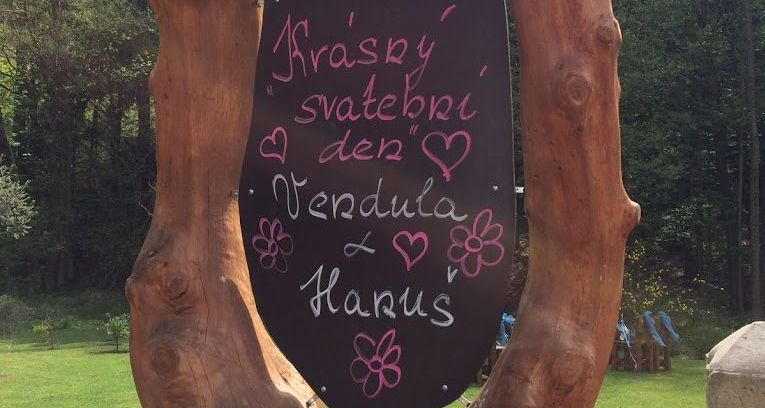 Krásný
"svatební
den"
Vendula
&
Hanuš